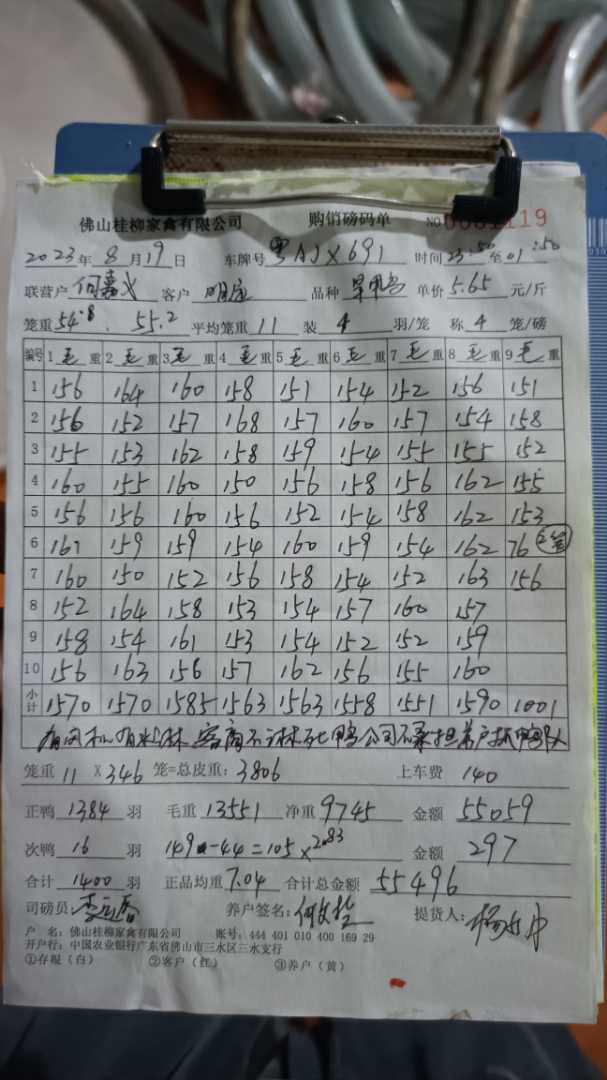 佛山桂柳家禽有限公司 购销磅码单 NO 0001119
2023年8月19日 车牌号 粤AJX691 时间 23:50至01:50
联营户 何嘉 客户 品种 单价 5.65 元/斤
笼重 54.8 . 55.2 平均笼重 11 装 4 羽/笼 称 4 笼/磅
编号 1毛重 2毛重 3毛重 4毛重 5毛重 6毛重 7毛重 8毛重 9毛重
1 156 164 160 158 151 154 152 156 151
2 156 152 157 168 157 160 157 154 158
3 155 153 162 158 159 154 155 155 152
4 160 155 160 150 156 158 156 162 155
5 156 156 160 156 152 154 158 162 153
6 161 159 159 154 160 159 154 162 76
7 160 150 152 156 158 154 152 163 156
8 152 164 158 153 154 157 160 157
9 158 154 161 153 154 152 152 159
10 156 163 156 157 162 156 155 160
小计 1570 1570 1585 1563 1563 1558 1551 1590 1001
客商不淋 鸭公司不承担养户
笼重 11 ×346 笼=总皮重: 3806 上车费 140
正鸭 1384 羽 毛重 13551 净重 9745 金额 55059
次鸭 16 羽 149-44=105×2.83 金额 297
合计 1400 羽 正品均重 7.04 合计总金额 55496
司磅员: 养户签名: 提货人:
户 名: 佛山桂柳家禽有限公司 账号: 444 401 010 400 169 29
开户行: 中国农业银行广东省佛山市三水区三水支行
①存根(白) ②客户(红) ③养户(黄)